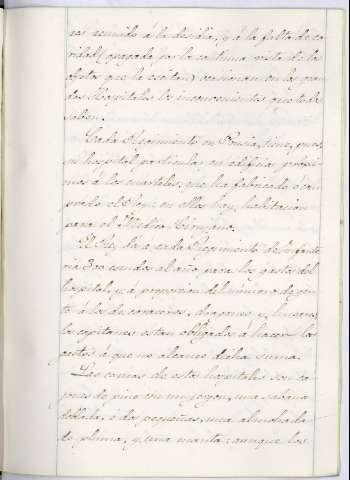 nes reunido á la desidia, y á la falta de ca
ridad (apagada por la continua vista de los
obgetos que la escitan) ocasionan en los gran
des Hospitales los inconvenientes que todos
saben.
Cada Regimiento en Prusia, tiene, pues,
su hospital particular, en edificios próxi-
mos á los cuarteles, que ha fabricado ó com
prado el Rey: en ellos hay habitacion
para el Médico Cirujano.
El Rey da a cada Regimiento de Infante
ria 300 escudos al año para los gastos del
hospital, y á proporcion del número de gen
te á los de coraceros, dragones y húsares;
los capitanes estan obligados á hacer los
gastos á que no alcance dicha suma.
Las camas de estos hospitales son ca
jones de pino con un jergon, una sábana
doblada, ó dos pequeñas, una almohada
de pluma, y una manta: aunque los